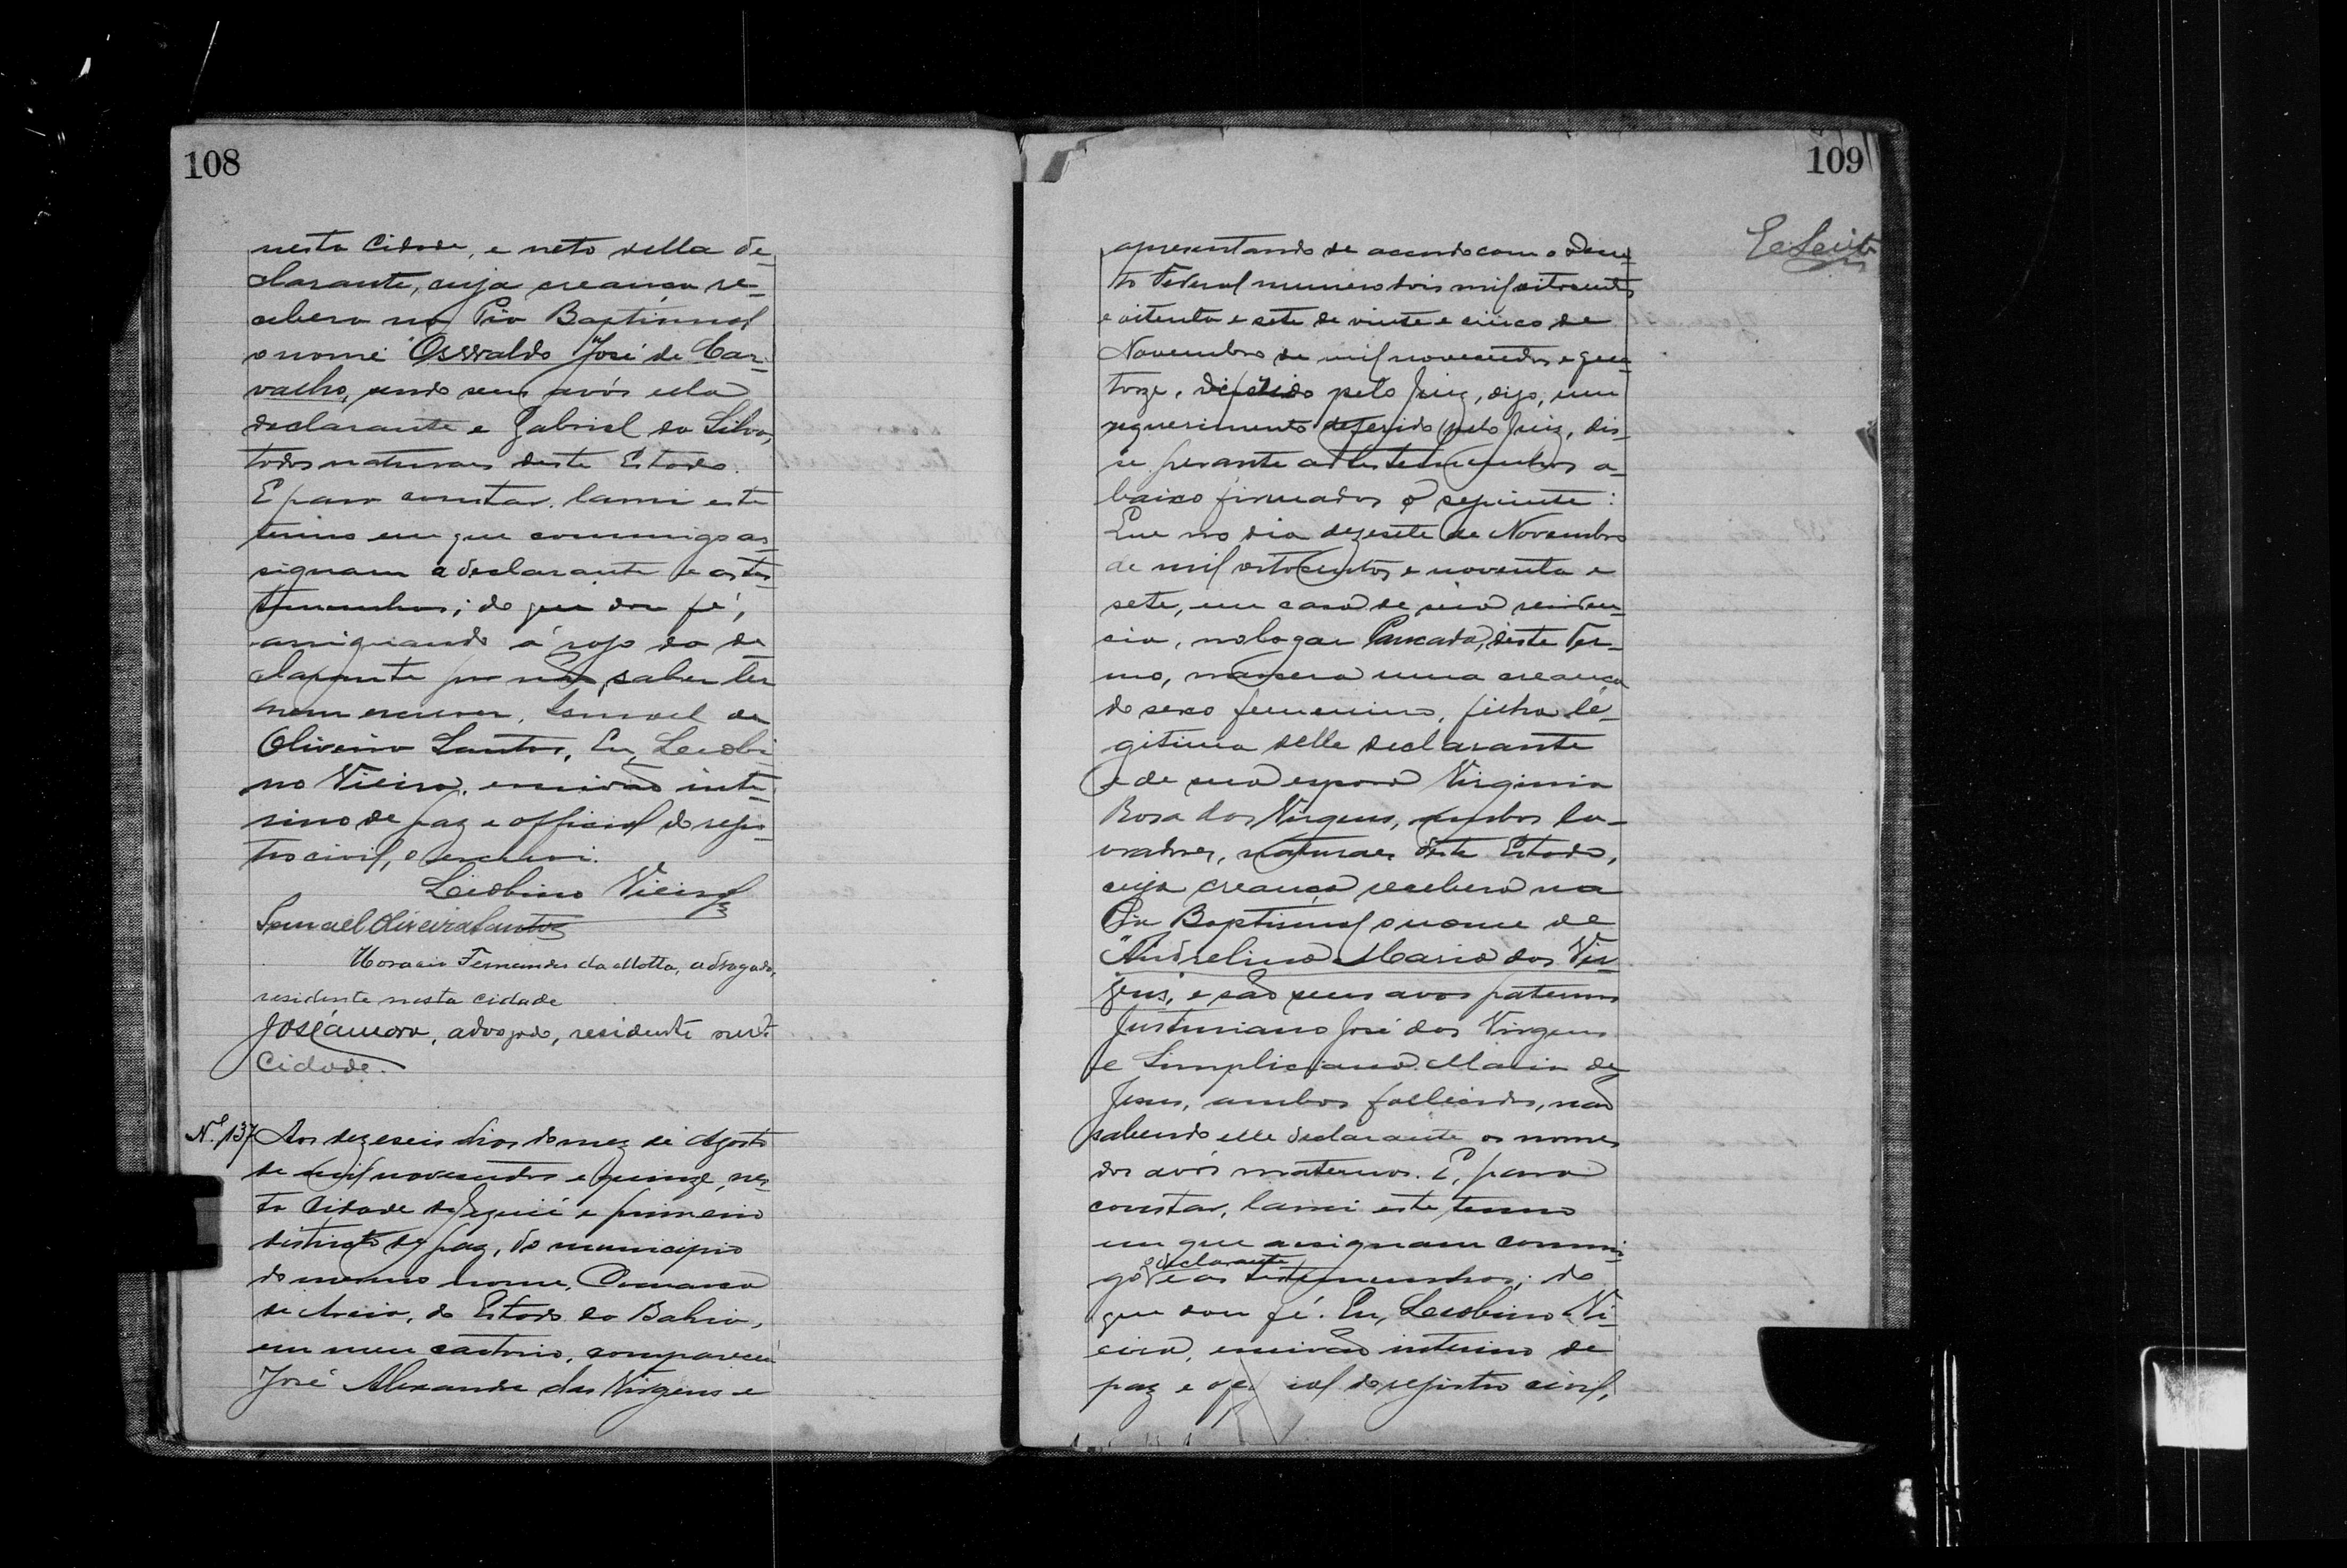 108
nesta Cidade, e neto della de-
clarante, cuja creança re-
cebera na Pia Baptismal
o nome "Osvaldo José de Car-
valho, sendo seus avós ella
declarante e Gabriel da Silva,
todos naturaes deste Estado.
E para constar, lavrei este
termo em que commigo as-
signam a declarante e as tes-
temunhas; do que dou fé,
assignando á rogo da de
clarante por não saber ler
nem escrever, Ismael de
Oliveira Santos. Eu, Leobi
no Vieira, escrivão inte-
rino de paz e official do regis-
tro civil, o escrevi.
Leobino Vieira
Ismael Oliveira Santos
Horacio Fernandes da Motta, advogado,
residente nesta cidade
José , advogado, residente nesta
Cidade.
Nº 137 Aos dezeseis dias do mez de Agosto
de mil novecentos e quinze, nes-
ta Cidade de Jequié e primeiro
districto de paz, do municipio
do mesmo nome, Comarca
de Areia, do Estado da Bahia,
em meu cartorio, compareceu
José Alexandre das Virgens e
109
apresentando de accordo com o Decre-
to Federal numero dois mil oitocentos
e oitenta e sete de vinte e cinco de
Novembro de mil novecentos e qua-
torze, pelo Juiz, digo, um
requerimento deferido pelo Juiz, dis-
se perante as testemunhas a-
baixo firmados o seguinte:
Que no dia dezesete de Novembro
de mil oitocentos e noventa e
sete, em casa de sua residen-
cia, no logar Pancada, deste Ter-
mo, nascera uma creança
do sexo femenino, filha le-
gitima delle declarante
e de sua esposa Virginia
Rosa das Virgens, ambos la-
vradores, naturaes deste Estado,
cuja creança recebera na
Pia Baptismal o nome de
"Andrelina Maria das Vir-
gens, e são seus avos paternos
Justiniano José das Virgens
e Simpliciana Maria de
Jesus, ambos fallecidos, não
sabendo elle declarante os nomes
dos avós maternos. E, para
constar, lavrei este termo
em que assignam commi-
o declarante
go e as testemunhas; do
que dou fé. Eu, Leobino Vi-
eira, escrivão interino de
paz e official do registro civil,